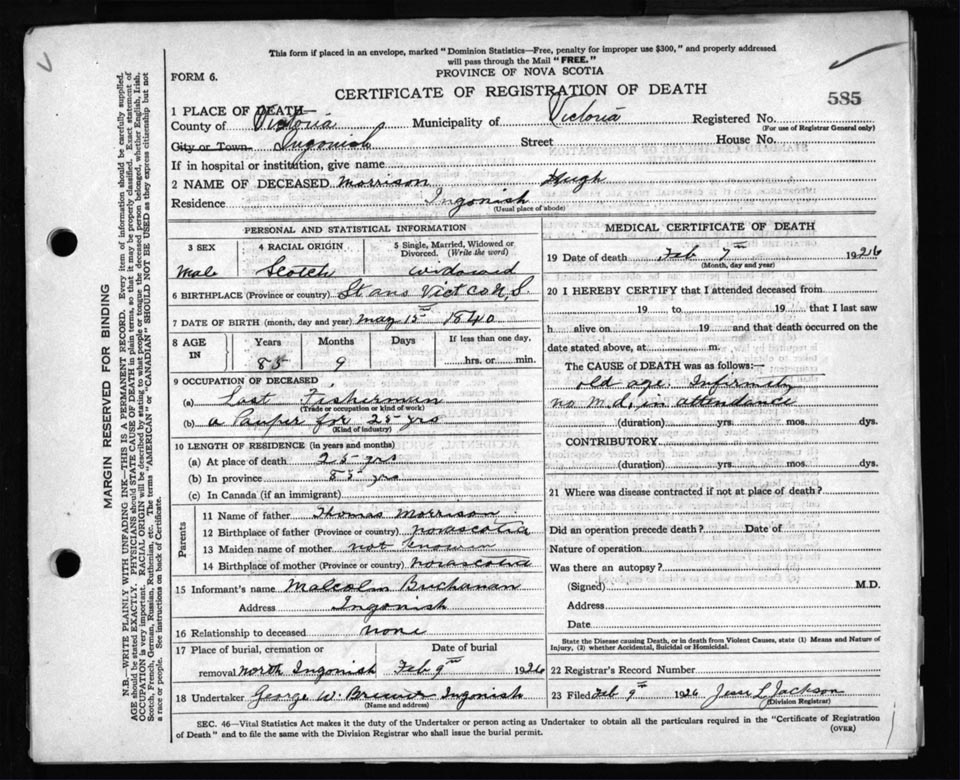 This form if placed in an envelope, marked "Dominion Statistics—Free, penalty for improper use $300," and properly addressed
will pass through the Mail "FREE."
FORM 6.
PROVINCE OF NOVA SCOTIA
CERTIFICATE OF REGISTRATION OF DEATH
585
1 PLACE OF DEATH—
County of Victoria Municipality of Victoria Registered No.
(For use of Registrar General only)
City or Town Ingonish Street House No.
If in hospital or institution, give name
2 NAME OF DECEASED Morrison Hugh
Residence Ingonish
(Usual place of abode)
PERSONAL AND STATISTICAL INFORMATION
3 SEX 4 RACIAL ORIGIN 5 Single, Married, Widowed or Divorced. (Write the word)
Male Scotch widowed
6 BIRTHPLACE (Province or country) St ans Vict co N.S.
7 DATE OF BIRTH (month, day and year) May 15th 1840
8 AGE IN Years Months Days If less than one day,
85 9 hrs. or min.
9 OCCUPATION OF DECEASED
(a) Last Fisherman
(Trade or occupation or kind of work)
(b) a Pauper for 25 yrs
(Kind of industry)
10 LENGTH OF RESIDENCE (in years and months)
(a) At place of death 25 yrs
(b) In province 85 yrs
(c) In Canada (if an immigrant)
Parents
11 Name of father Thomas Morrison
12 Birthplace of father (Province or country) novascotia
13 Maiden name of mother not known
14 Birthplace of mother (Province or country) novascotia
15 Informant's name Malcolm Buchanan
Address Ingonish
16 Relationship to deceased none
17 Place of burial, cremation or Date of burial
removal North Ingonish Feb 9th 1926
18 Undertaker George W. Brewer Ingonish
(Name and address)
MEDICAL CERTIFICATE OF DEATH
19 Date of death Feb 7th 1926
(Month, day and year)
20 I HEREBY CERTIFY that I attended deceased from
19 to 19 that I last saw
h alive on 19 and that death occurred on the
date stated above, at m.
The CAUSE of DEATH was as follows:—
old age. Infirmity
no M.d. in attendance
(duration) yrs. mos. dys.
CONTRIBUTORY
(duration) yrs. mos. dys.
21 Where was disease contracted if not at place of death?
Did an operation precede death? Date of
Nature of operation
Was there an autopsy?
(Signed) M.D.
Address
Date
State the Disease causing Death, or in death from Violent Causes, state (1) Means and Nature of
Injury, (2) whether Accidental, Suicidal or Homicidal.
22 Registrar's Record Number
23 Filed Feb 9th 1926 Jesse L Jackson
(Division Registrar)
SEC. 46—Vital Statistics Act makes it the duty of the Undertaker or person acting as Undertaker to obtain all the particulars required in the "Certificate of Registration
of Death" and to file the same with the Division Registrar who shall issue the burial permit.
(OVER)
MARGIN RESERVED FOR BINDING
N.B.—WRITE PLAINLY WITH UNFADING INK—THIS IS A PERMANENT RECORD. Every item of information should be carefully supplied.
AGE should be stated EXACTLY. PHYSICIANS should STATE CAUSE OF DEATH in plain terms, so that it may be properly classified. Exact statement of
OCCUPATION is very important. RACIAL ORIGIN will be described by stating to what people or tongue the deceased person belonged, whether English, Irish,
Scotch, French, German, Russian, Ruthenian, etc. The terms "AMERICAN" or "CANADIAN" SHOULD NOT BE USED as they express citizenship but not
a race or people. See instructions on back of Certificate.